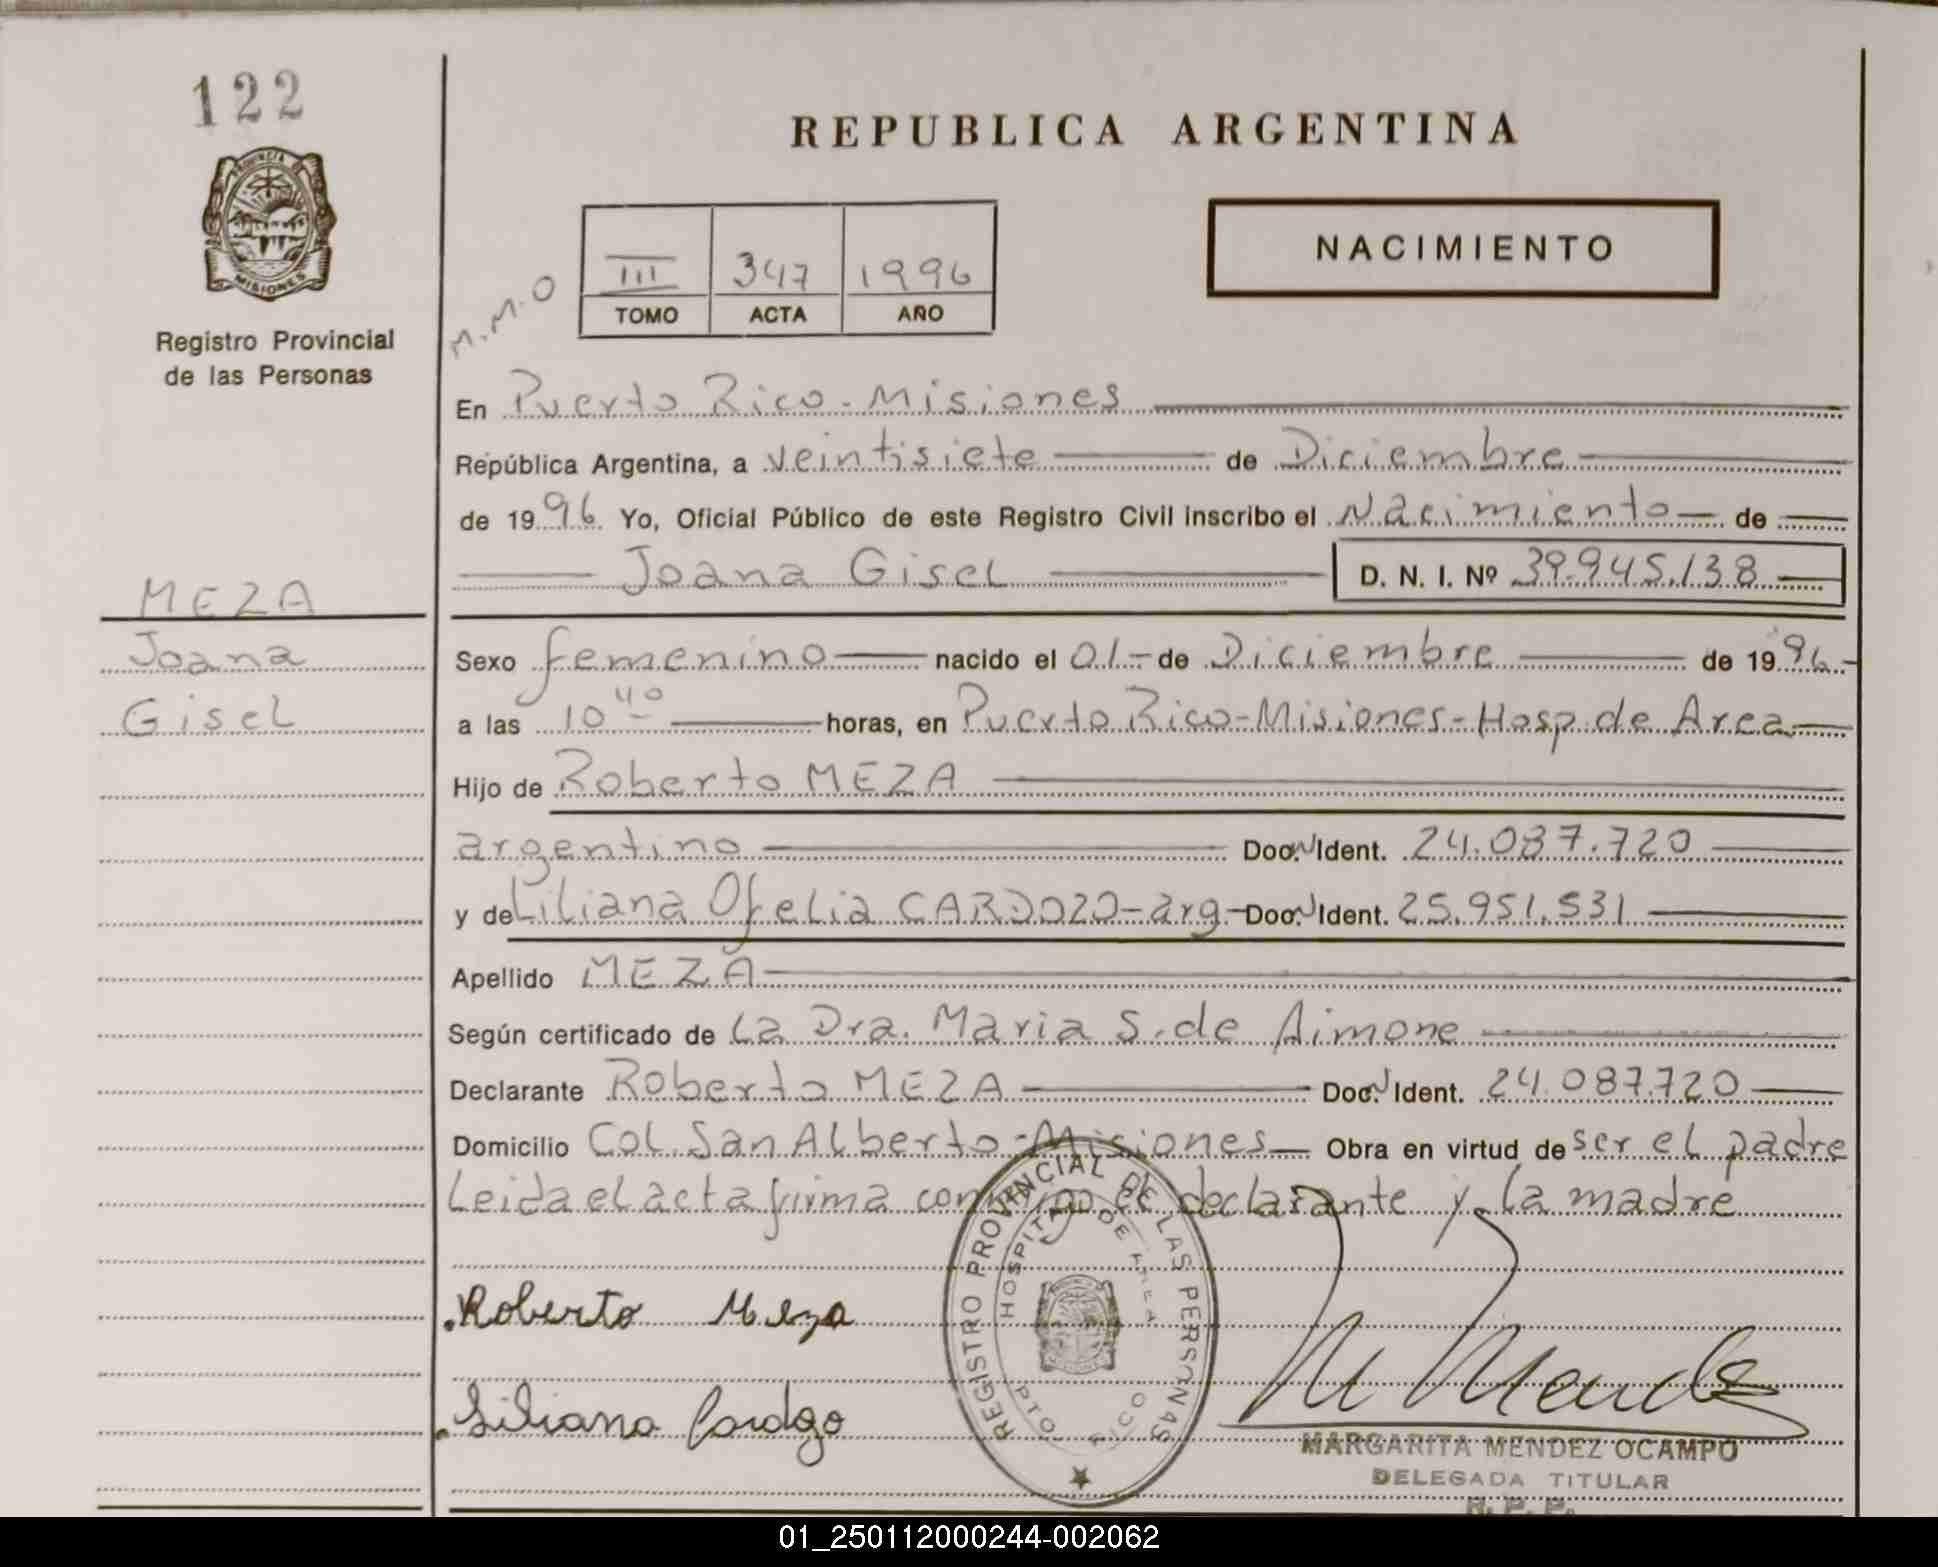 122
PROVINCIA
MISIONES
Registro Provincial
de las Personas
MEZA
Joana
Gisel
REPUBLICA ARGENTINA
M.M.O
III 347 1996
TOMO ACTA AÑO
NACIMIENTO
En Puerto Rico - Misiones
República Argentina, a veintisiete de Diciembre
de 1996 Yo, Oficial Público de este Registro Civil inscribo el Nacimiento de
Joana Gisel D. N. I. Nº 39.945.138
Sexo femenino nacido el 01 - de Diciembre de 1996
a las 10 40 horas, en Puerto Rico - Misiones - Hosp. de Area
Hijo de Roberto MEZA
argentino Doc. Ident. 24.087.720
y de Liliana Ofelia CARDOZO - arg - Doc. Ident. 25.951.531
Apellido MEZA
Según certificado de La Dra. Maria S. de Aimone
Declarante Roberto MEZA Doc. Ident. 24.087.720
Domicilio Col. San Alberto - Misiones Obra en virtud de ser el padre
Leida el acta firma conmigo el declarante y la madre
Roberto Meza
Liliana Cardozo
REGISTRO PROVINCIAL DE LAS PERSONAS
HOSPITAL DE AREA
PTO RICO
M Mendez
MARGARITA MENDEZ OCAMPO
DELEGADA TITULAR
R. P. P.
01_250112000244-002062